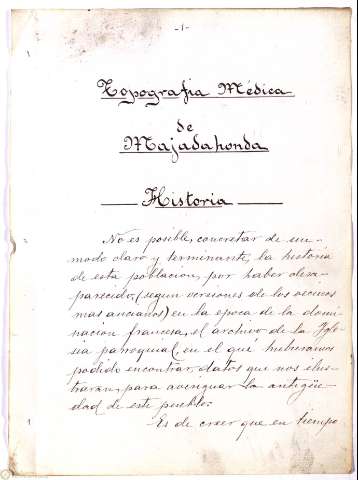 -1-
Topografia Médica
de
Majadahonda
Historia
No es posible, concretar de un
modo claro y terminante, la historia
de esta población, por haber desa-
parecido, (segun versiones de los vecinos
mas ancianos) en la epoca de la domi-
nacion francesa, el archivo de la Igle-
sia parroquial, en el qué hubieramos
podido encontrar, datos que nos ilus-
traran, para averiguar la antigüe-
dad de este pueblo.
Es de creer que en tiempo